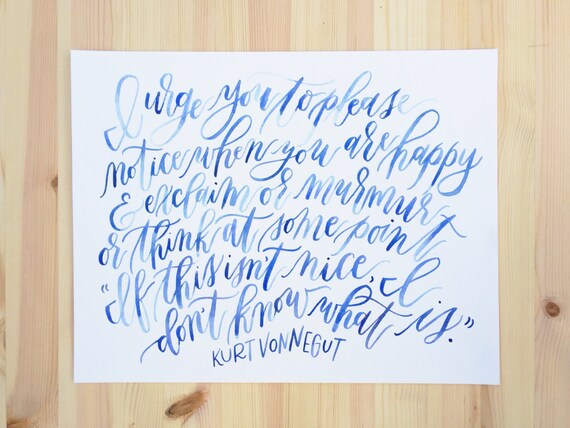 I urge you to please
notice when you are happy
& exclaim or murmur
or think at some point
"If this isn't nice, I
don't know what is."
KURT VONNEGUT